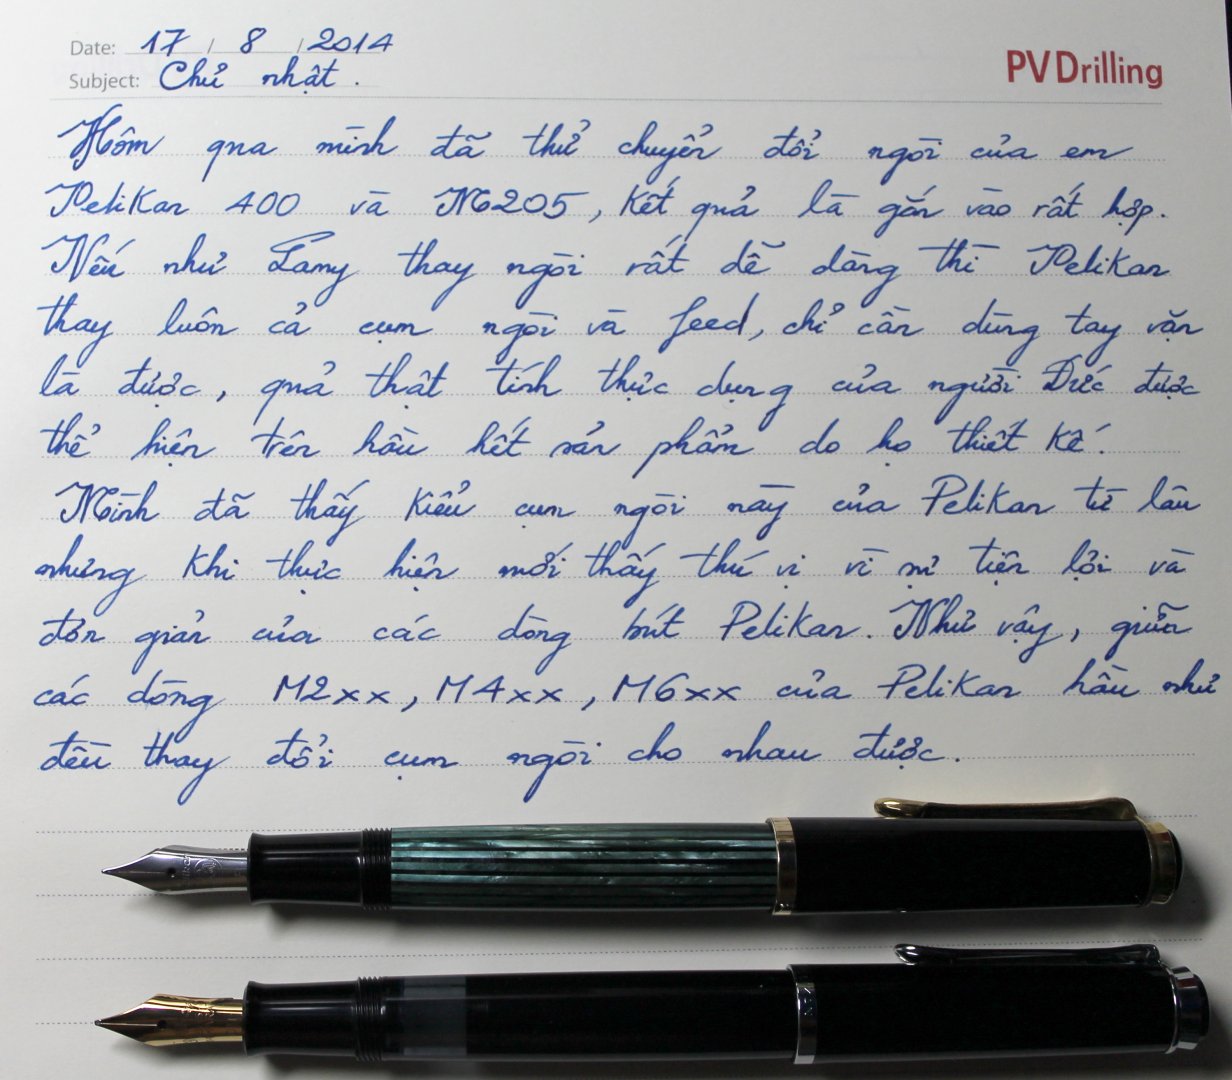 Date: 17 / 8 / 2014
Subject: Chủ nhật.
PVDrilling
Hôm qua mình đã thử chuyển đổi ngòi của em
Pelikan 400 và M205, kết quả là gắn vào rất hợp.
Nếu như Lamy thay ngòi rất dễ dàng thì Pelikan
thay luôn cả cụm ngòi và feed, chỉ cần dùng tay vặn
là được, quả thật tính thực dụng của người Đức được
thể hiện trên hầu hết sản phẩm do họ thiết kế.
Mình đã thấy kiểu cụm ngòi này của Pelikan từ lâu
nhưng khi thực hiện mới thấy thú vị vì sự tiện lợi và
đơn giản của các dòng bút Pelikan. Như vậy, giữa
các dòng M2xx, M4xx, M6xx của Pelikan hầu như
đều thay đổi cụm ngòi cho nhau được.